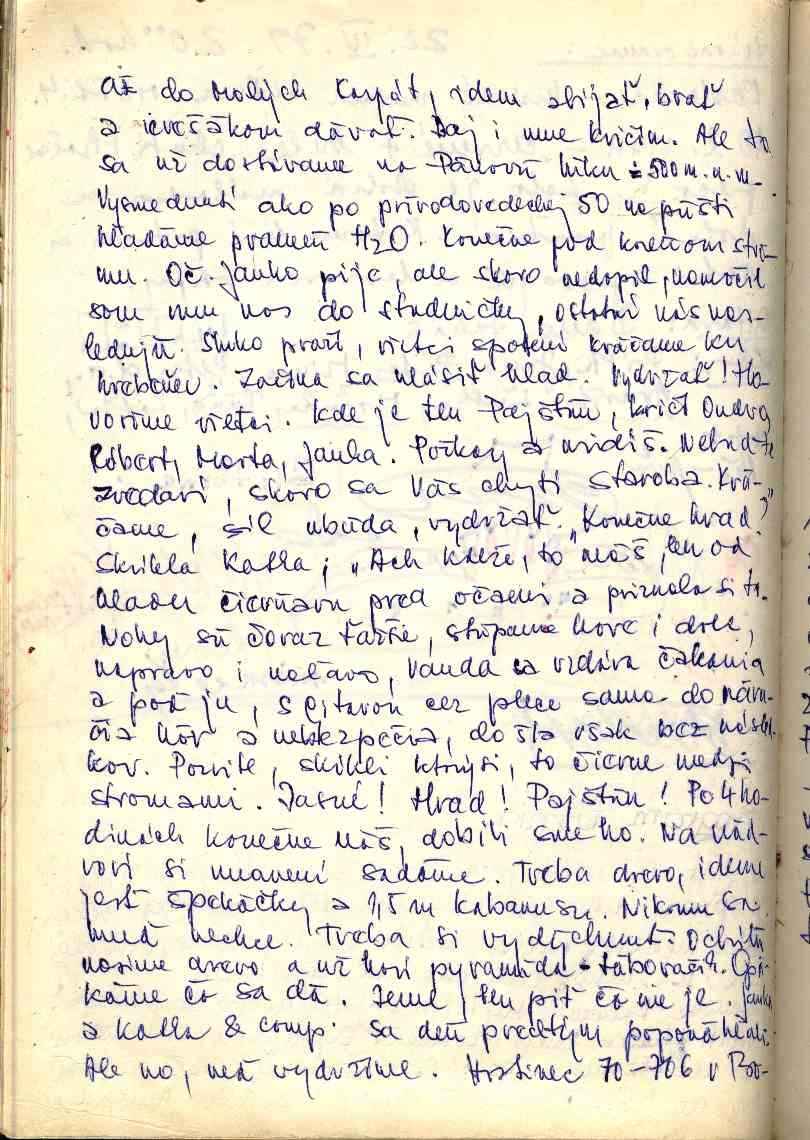 až do Malých Karpát, idem zbíjať, brať
a dávať. Daj i mne kričím. Ale to
sa už dostávame na Pánovú lúku ≐ 500 m.n.m.
Vysmednutí ako po prírodovedeckej 50 na púšti
hľadáme prameň H2O. Konečne pod koreňom stro-
mu. Oč. Janko pije, ale skoro nedopil, namočil
som mu nos do studničky, ostatní nás nas-
ledujú. Slnko praží, všetci spotení kráčame ku
hrebeňu. Začína sa hlásiť hlad. Vydržať! Ho-
voríme všetci. Kde je ten Pajštún, kričí Ondrej,
Róbert, Marta, Janka. Počkaj a uvidíš. Nebuďte
zvedaví, skoro sa Vás chytí staroba. Krá-
čame, síl ubúda, vydržať. „Konečne hrad?“
Skríkla Katka; „Ach kdeže, to máš len od
hladu čierňavu pred očami a priznala si to.
Nohy sú čoraz ťažšie, stúpame hore i dole,
napravo i naľavo, Vanda sa vzdáva čakania
a poď ju, s gitarou cez plece sama do náru-
čia hôr a nebezpečia, došla však bez násled-
kov. Pozrite, skríkli ktorýsi, to čierne medzi
stromami. Jasné! Hrad! Pajštún! Po 4 ho-
dinách konečne náš, dobili sme ho. Na nád-
vorí si unavení sadáme. Treba drevo, ideme
jesť špekáčky a 1,5 m kabanusu. Nikomu sa
nechce. Treba si vydýchnuť. Ochotní
nosíme drevo a už horí pyramída - táboráčik. Opé-
káme čo sa dá. Jeme, len piť čo nie je. Janka
a Katka & comp. sa deň predtým poponáhľali.
Ale no, než vydržíme. Hostinec 70-706 v Bo-